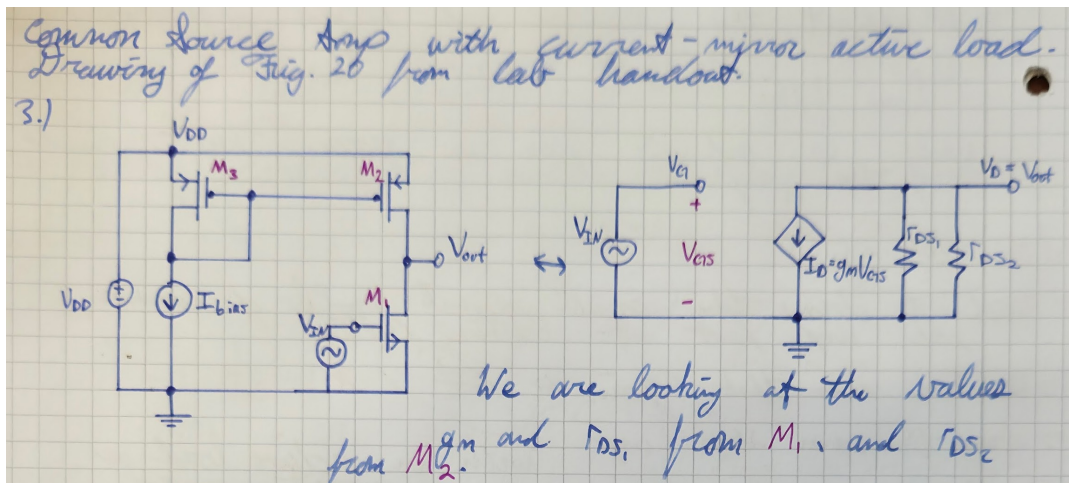 Common Source Amp with current-mirror active load.
Drawing of Fig. 20 from lab handout.
3.)
VDD
M3
M2
VDD
Ibias
Vout
M1
VIN
VG
+
VGS
-
VIN
ID=gmVGS
rDS1
rDS2
VD = Vout
We are looking at the values
gm and rDS1 from M1, and rDS2
from M2.